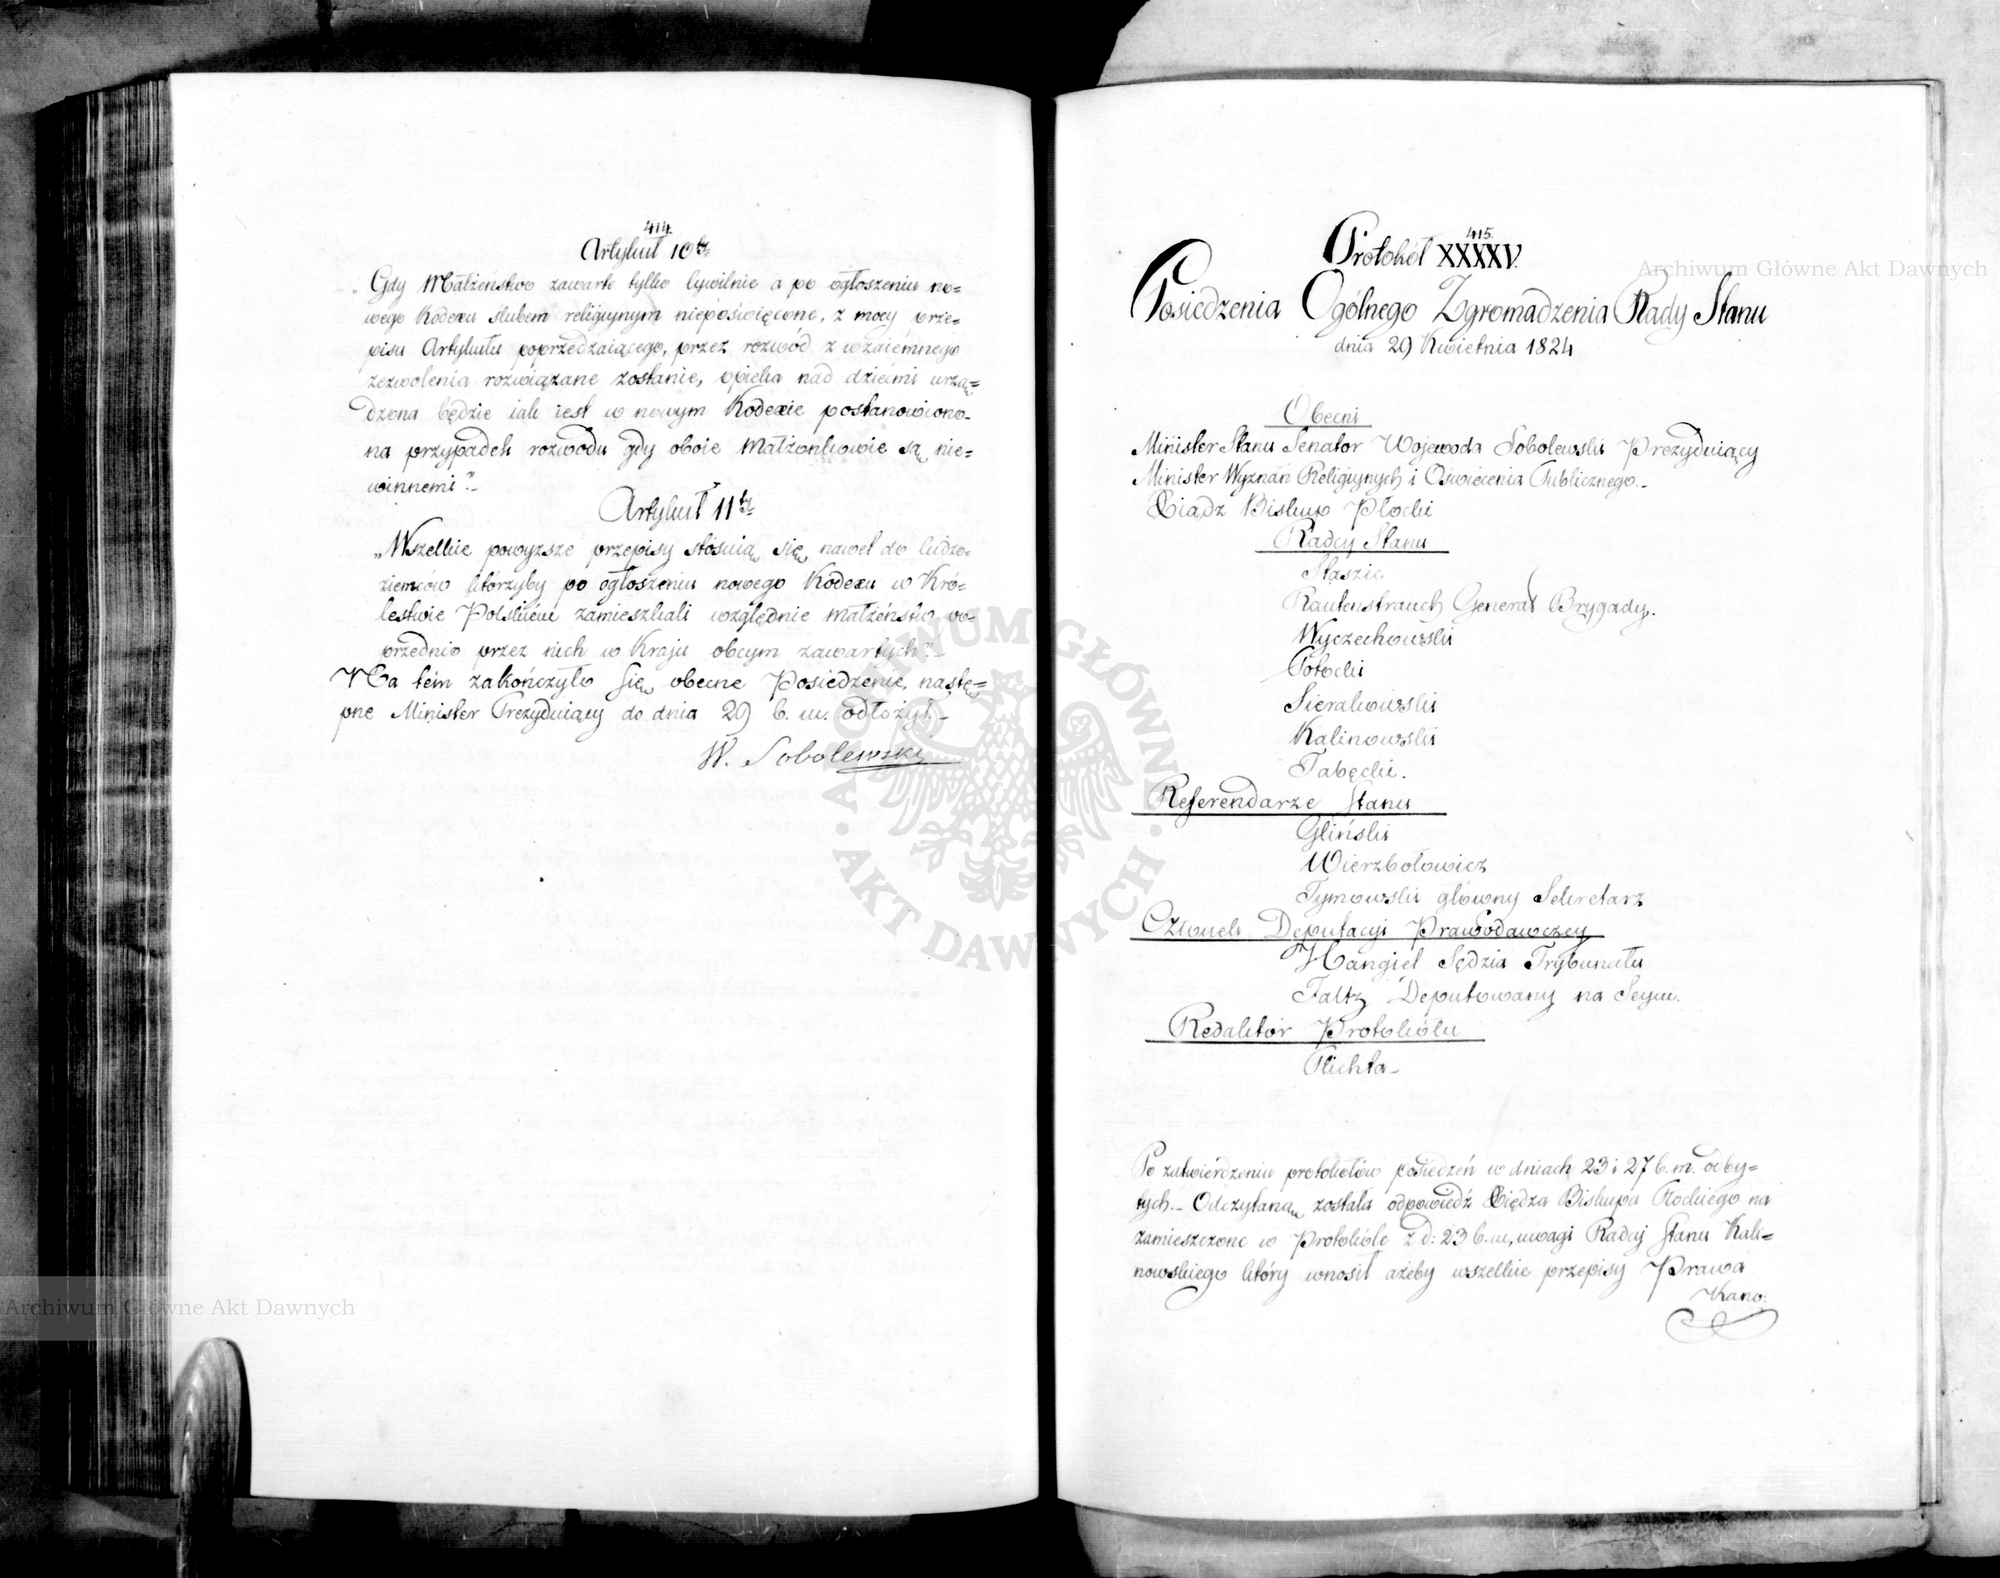 414.
Artykuł 10ty
„Gdy Małżeństwo zawarte tylko Cywilnie a po ogłoszeniu no=
wego Kodexu ślubem religiynym niepoświęcone, z mocy prze=
pisu Artykułu poprzedzaiącego, przez rozwód z wzaiemnego
zezwolenia rozwiązane zostanie, opieka nad dziećmi urzą=
dzona będzie iak iest w nowym Kodexie postanowiono
na przypadek rozwodu gdy oboie Małżonkowie są nie=
winnemi”_
Artykuł 11ty
„Wszelkie powyższe przepisy stósuią się nawet do ludzo=
ziemców którzyby po ogłoszeniu nowego Kodexu w Kró=
lestwie Polskiém zamieszkali względnie małżeństw po=
przednio przez nich w Kraju obcym zawartych”_
Na tém zakończyło się obecne Posiedzenie, nastę=
pne Minister Prezyduiący do dnia 29 b. m. odłożył._
W. Sobolewski
415.
Protokół XXXXV.
Posiedzenia Ogólnego Zgromadzenia Rady Stanu
dnia 29 Kwietnia 1824
Obecni
Minister Stanu Senator Wojewoda Sobolewski Prezyduiący
Minister Wyznań Religiynych i Oświecenia Publicznego._
Xiądz Biskup Płocki
Radcy Stanu
Staszic
Rautenstrauch Generał Brygady.
Wyczechowski
Potocki
Sierakowski
Kalinowski
Tabęcki.
Referendarze Stanu
Gliński
Wierzbołowicz
Tymowski główny Sekretarz
Członek Deputacyi Prawodawczey
Hangiel Sędzia Trybunału
Faltz Deputowany na Seym.
Redaktor Protokółu
Plichta_
Po zatwierdzeniu protokołów posiedzeń w dniach 23 i 27 b. m. odby=
tych._ Odczytaną została odpowiedź Xiędza Biskupa Płockiego na
zamieszczone w Protokóle z d: 23 b. m, uwagi Radcy Stanu Kali=
nowskiego który wnosił ażeby wszelkie przepisy Prawa
Kano:
Archiwum Główne Akt Dawnych
Archiwum Główne Akt Dawnych
ARCHIWUM GŁÓWNE AKT DAWNYCH